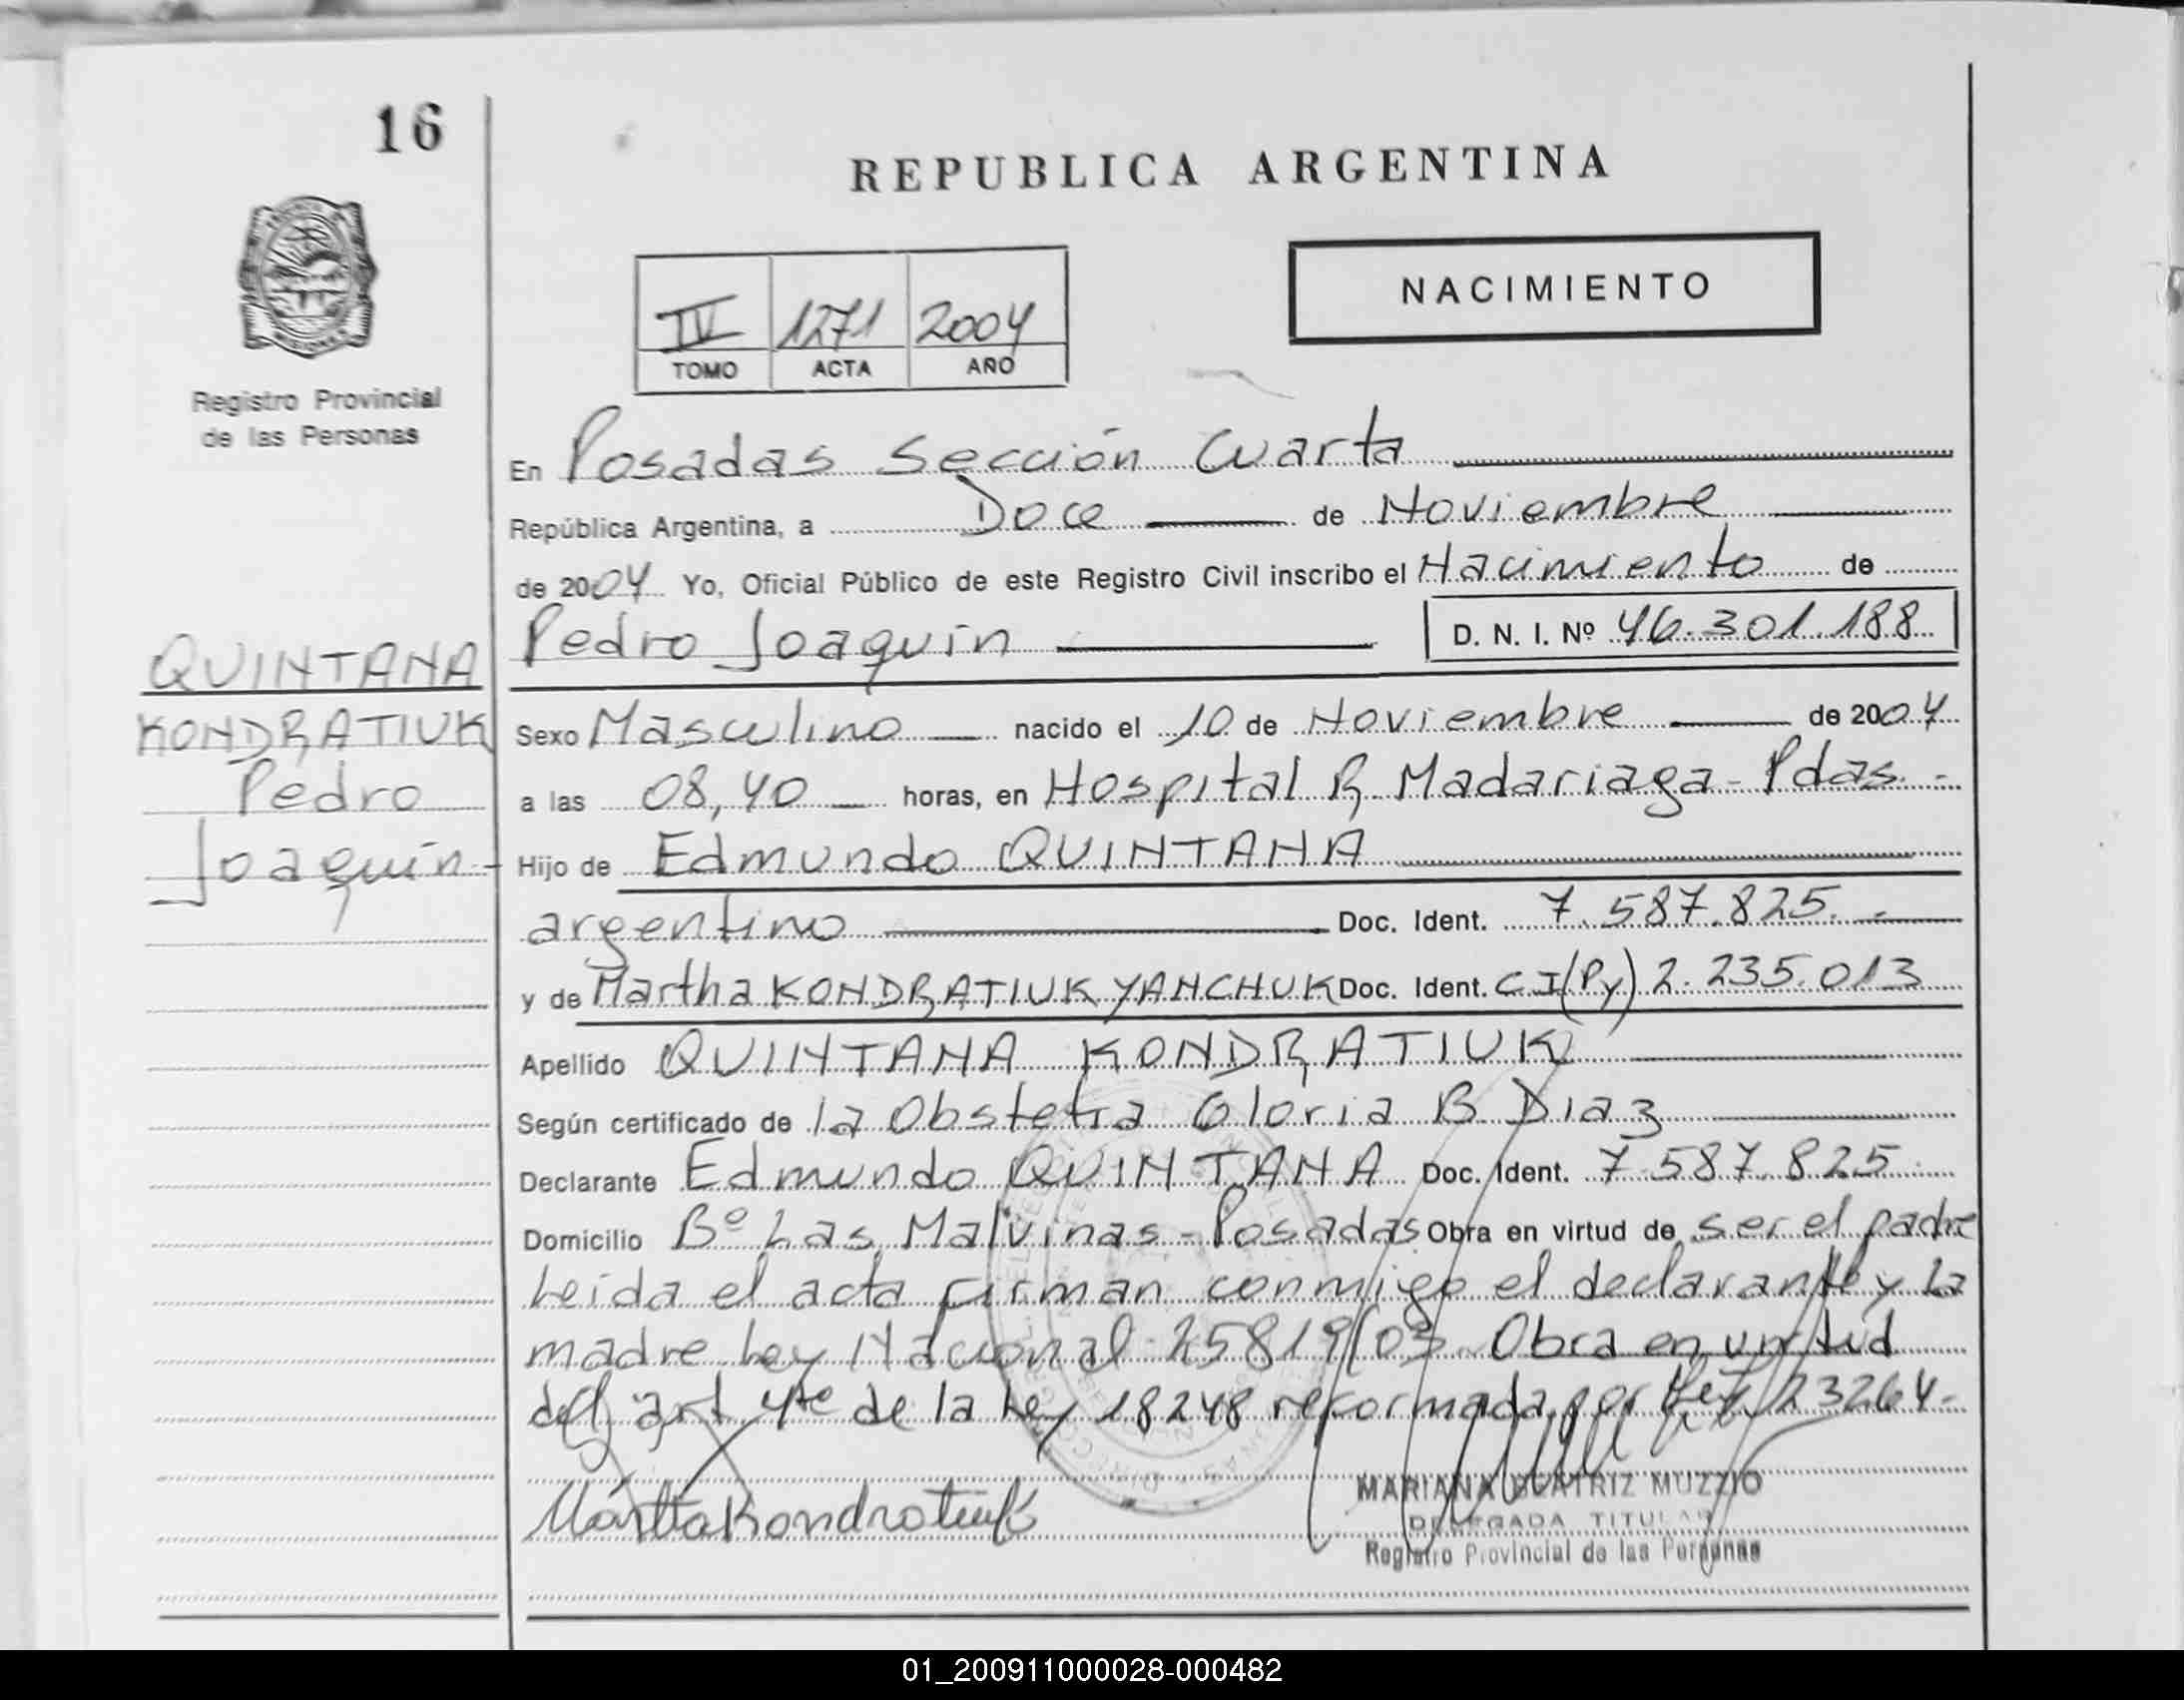 16
REPUBLICA ARGENTINA
NACIMIENTO
IV 1271 2004
TOMO ACTA AÑO
Registro Provincial
de las Personas
QUINTANA
KONDRATIUK
Pedro
Joaquín
En Posadas Sección Cuarta
República Argentina, a Doce de Noviembre
de 2004 Yo, Oficial Público de este Registro Civil inscribo el Nacimiento de
Pedro Joaquín D. N. I. Nº 46.301.188
Sexo Masculino nacido el 10 de Noviembre de 2004
a las 08,40 horas, en Hospital R. Madariaga - Pdas.-
Hijo de Edmundo QUINTANA
argentino Doc. Ident. 7.587.825.-
y de Martha KONDRATIUK YANCHUK Doc. Ident. CI(Py) 2.235.013
Apellido QUINTANA KONDRATIUK
Según certificado de la Obstetra Gloria B Diaz
Declarante Edmundo QUINTANA Doc. Ident. 7.587.825
Domicilio Bº Las Malvinas - Posadas Obra en virtud de ser el padre
Leída el acta firman conmigo el declarante y la
madre Ley Nacional 25819/03 Obra en virtud
del art 4te de la Ley 18248 reformada por Ley 23264-
Martta Kondratiuk
MARIANA BEATRIZ MUZZIO
DELEGADA TITULAR
Registro Provincial de las Personas
01_200911000028-000482